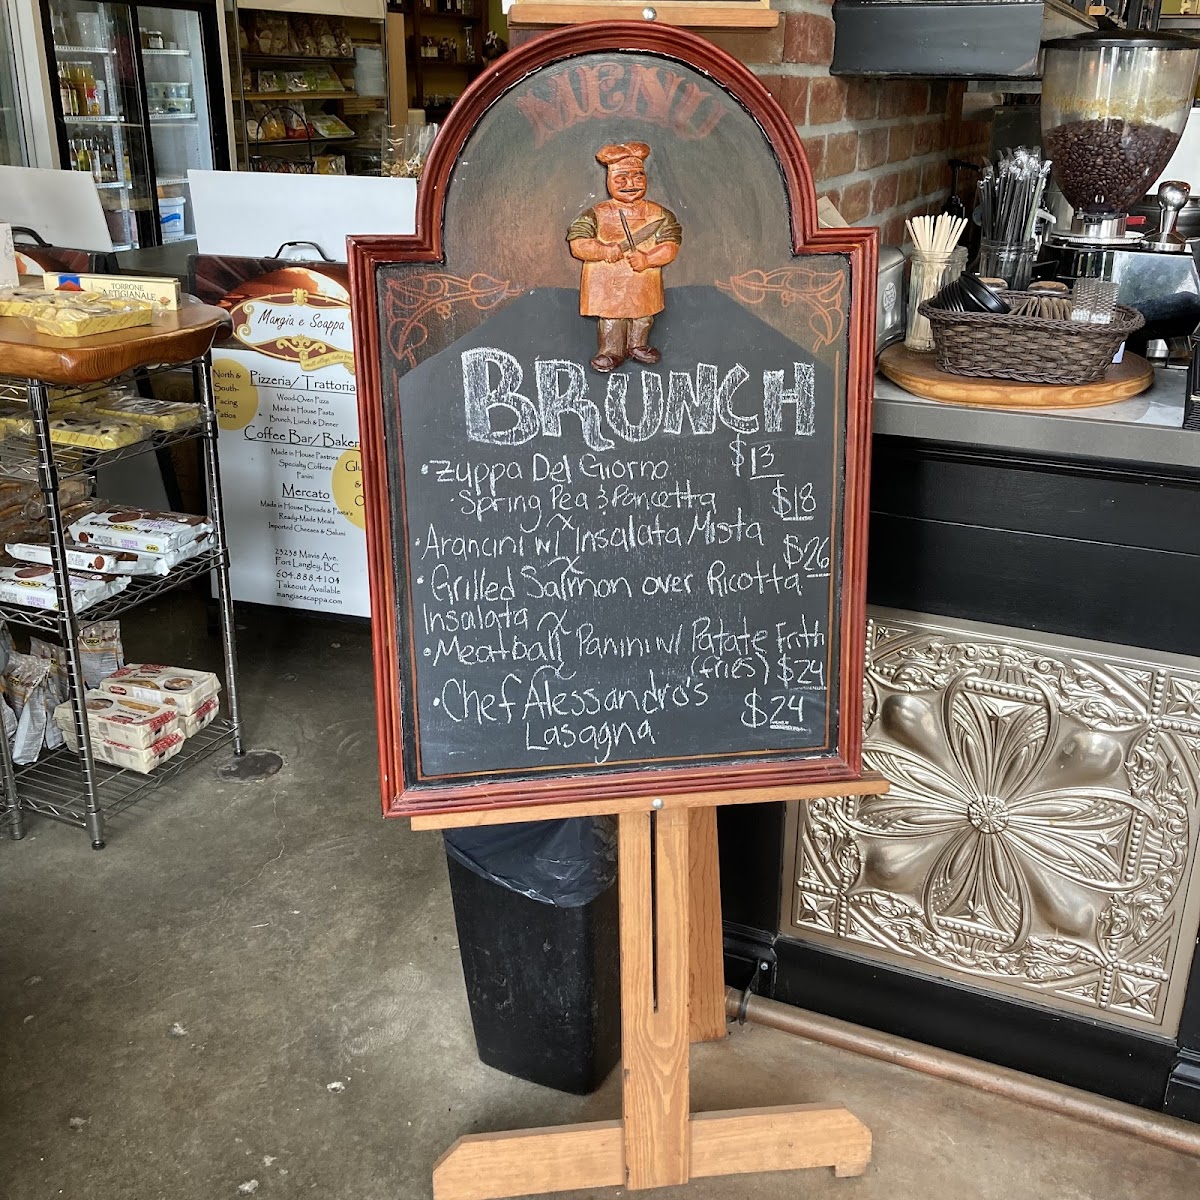 MENU
BRUNCH
• Zuppa Del Giorno $13
• Spring Pea & Pancetta
$18
• Arancini w/ Insalata Mista
$26
• Grilled Salmon over Ricotta
Insalata
• Meatball Panini w/ Patate Fritti
(fries) $24
• Chef Alessandro's
Lasagna $24
TORRONE
ARTIGIANALE
Mangia e Scappa
North &
South-
Facing
Patios
Pizzeria/Trattoria
Wood-Oven Pizza
Made in House Pasta
Brunch, Lunch & Dinner
Coffee Bar/Baker
Made in House Pastries
Specialty Coffees
Panini
Mercato
Made in House Breads & Pasta's
Ready-Made Meals
Imported Cheeses & Salumi
23238 Mavis Ave.
Fort Langley, BC
604.888.4104
Takeout Available
mangiaescappa.com